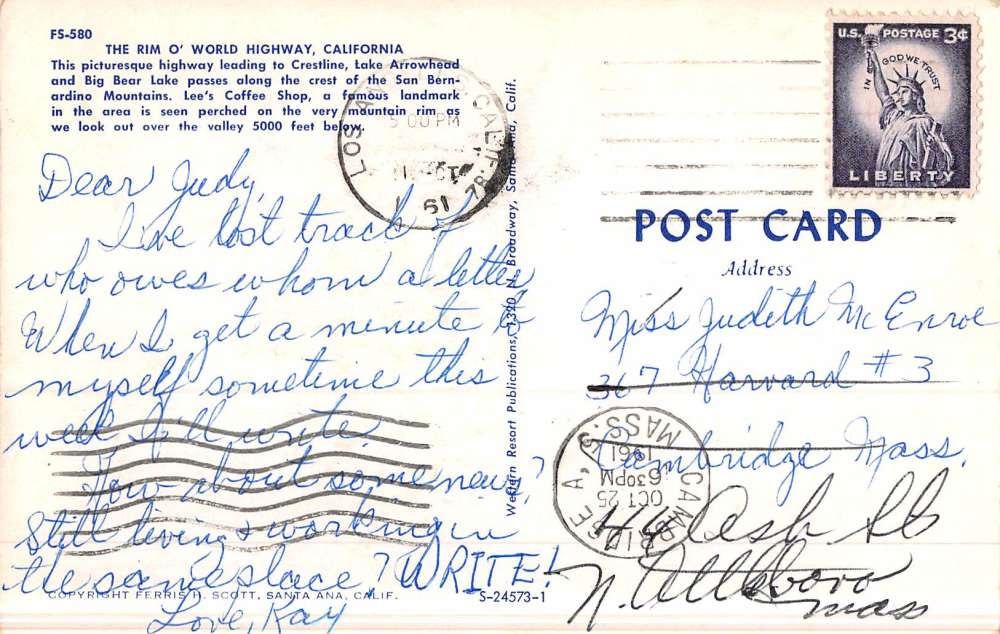 FS-580
THE RIM O' WORLD HIGHWAY, CALIFORNIA
This picturesque highway leading to Crestline, Lake Arrowhead
and Big Bear Lake passes along the crest of the San Bern-
ardino Mountains. Lee's Coffee Shop, a famous landmark
in the area is seen perched on the very mountain rim as
we look out over the valley 5000 feet below.
LOS AN CALIF.
5 00 PM
1961
Dear Judy,
I've lost track of
who owes whom a letter
When I get a minute to
myself sometime this
week I'll write.
How about some news?
Still living & working in
the same place? WRITE!
Love, Kay
COPYRIGHT FERRIS H. SCOTT, SANTA ANA, CALIF.
S-24573-1
Western Resort Publications, 1320 N. Broadway, Santa Ana, Calif.
U.S. POSTAGE 3¢
IN GOD WE TRUST
LIBERTY
POST CARD
Address
Miss Judith McEnroe
367 Harvard #3
Cambridge Mass.
CAMBRIDGE A, MASS.
OCT 25
6 30 PM
1961
Cash St
N. Attleboro
Mass